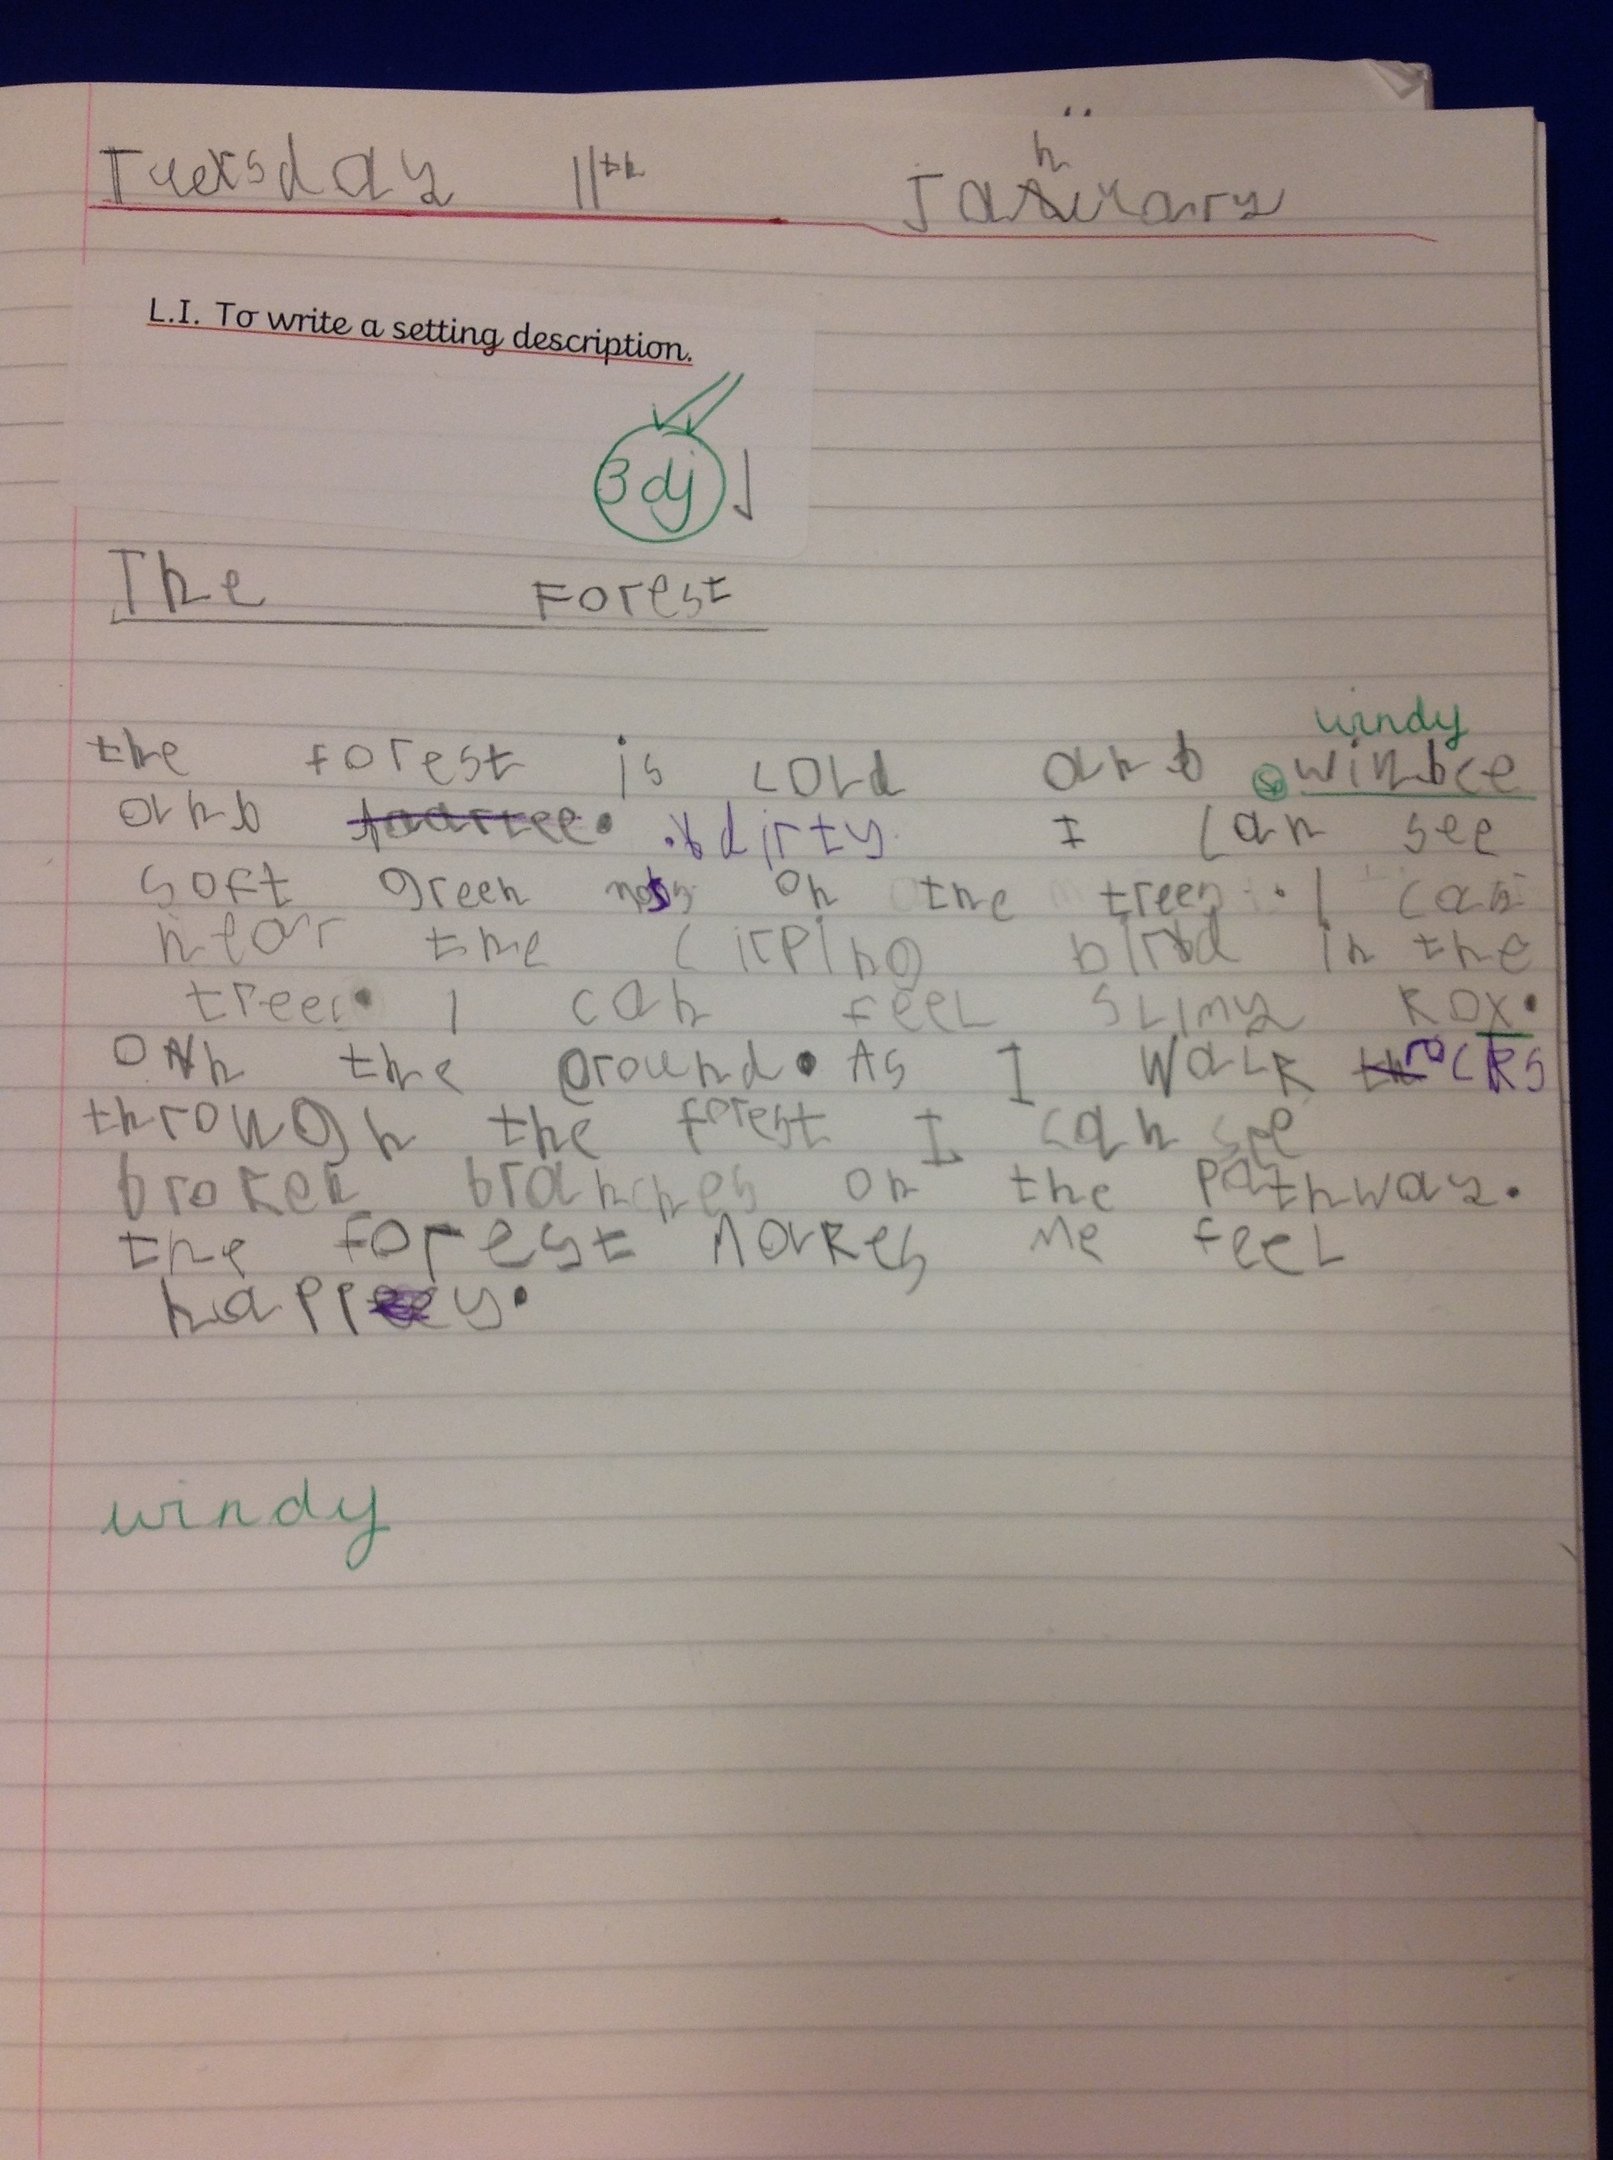 Tuesday 11th January
L.I. To write a setting description.
The Forest
windy
the forest is cold anb winbee
anb dirty. I can see
soft green moss on the trees. I can
hear the cirping bird in the
trees. I can feel slimy rox.
on the ground. As I walk rocks
through the forest I can see
broken branches on the pathway.
the forest makes me feel
happy.
windy